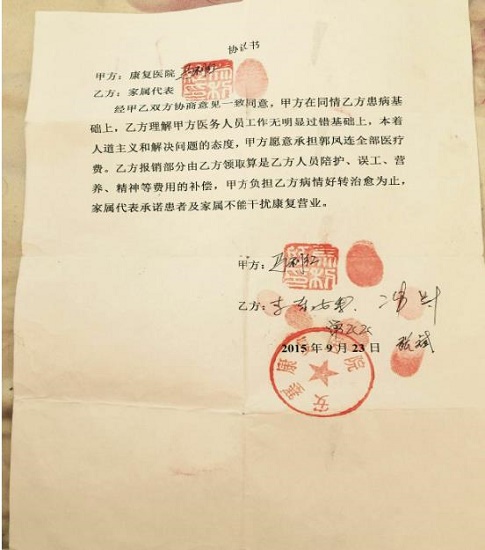 协议书
甲方：康复医院
乙方：家属代表
经甲乙双方协商意见一致同意，甲方在同情乙方患病基
础上，乙方理解甲方医务人员工作无明显过错基础上，本着
人道主义和解决问题的态度，甲方愿意承担郭凤连全部医疗
费。乙方报销部分由乙方领取算是乙方人员陪护、误工、营
养、精神等费用的补偿，甲方负担乙方病情好转治愈为止，
家属代表承诺患者及家属不能干扰康复营业。
甲方：
乙方：
2015年9月23日